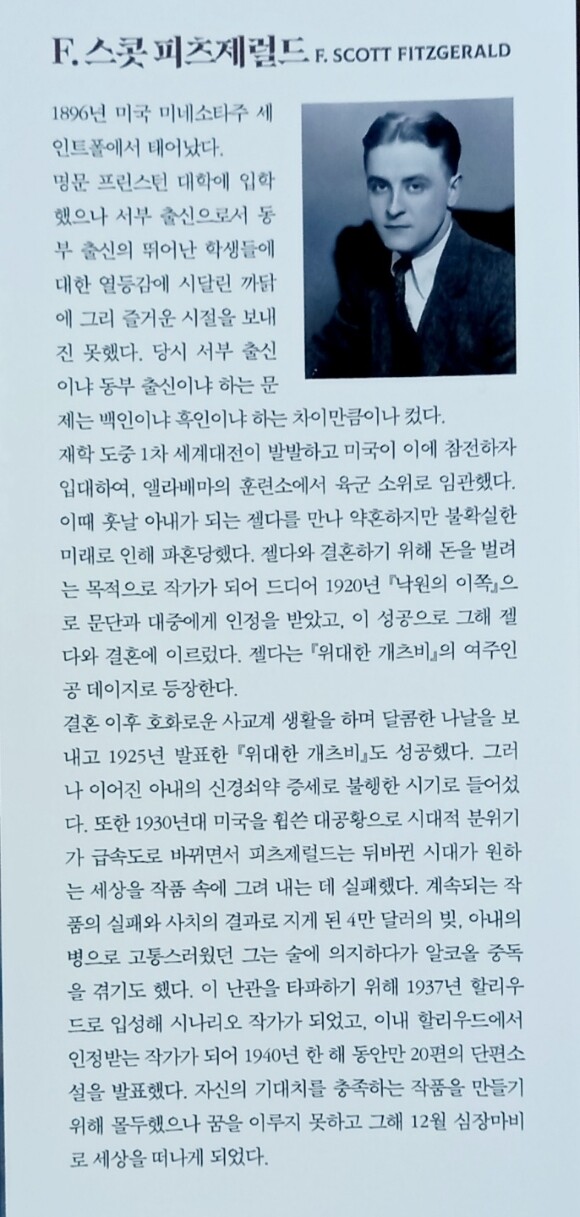 F. 스콧 피츠제럴드 F. SCOTT FITZGERALD
1896년 미국 미네소타주 세
인트폴에서 태어났다.
명문 프린스턴 대학에 입학
했으나 서부 출신으로서 동
부 출신의 뛰어난 학생들에
대한 열등감에 시달린 까닭
에 그리 즐거운 시절을 보내
진 못했다. 당시 서부 출신
이냐 동부 출신이냐 하는 문
제는 백인이냐 흑인이냐 하는 차이만큼이나 컸다.
재학 도중 1차 세계대전이 발발하고 미국이 이에 참전하자
입대하여, 앨라배마의 훈련소에서 육군 소위로 임관했다.
이때 훗날 아내가 되는 젤다를 만나 약혼하지만 불확실한
미래로 인해 파혼당했다. 젤다와 결혼하기 위해 돈을 벌려
는 목적으로 작가가 되어 드디어 1920년 『낙원의 이쪽』으
로 문단과 대중에게 인정을 받았고, 이 성공으로 그해 젤
다와 결혼에 이르렀다. 젤다는 『위대한 개츠비』의 여주인
공 데이지로 등장한다.
결혼 이후 호화로운 사교계 생활을 하며 달콤한 나날을 보
내고 1925년 발표한 『위대한 개츠비』도 성공했다. 그러
나 이어진 아내의 신경쇠약 증세로 불행한 시기로 들어섰
다. 또한 1930년대 미국을 휩쓴 대공황으로 시대적 분위기
가 급속도로 바뀌면서 피츠제럴드는 뒤바뀐 시대가 원하
는 세상을 작품 속에 그려 내는 데 실패했다. 계속되는 작
품의 실패와 사치의 결과로 지게 된 4만 달러의 빚, 아내의
병으로 고통스러웠던 그는 술에 의지하다가 알코올 중독
을 겪기도 했다. 이 난관을 타파하기 위해 1937년 할리우
드로 입성해 시나리오 작가가 되었고, 이내 할리우드에서
인정받는 작가가 되어 1940년 한 해 동안만 20편의 단편소
설을 발표했다. 자신의 기대치를 충족하는 작품을 만들기
위해 몰두했으나 꿈을 이루지 못하고 그해 12월 심장마비
로 세상을 떠나게 되었다.